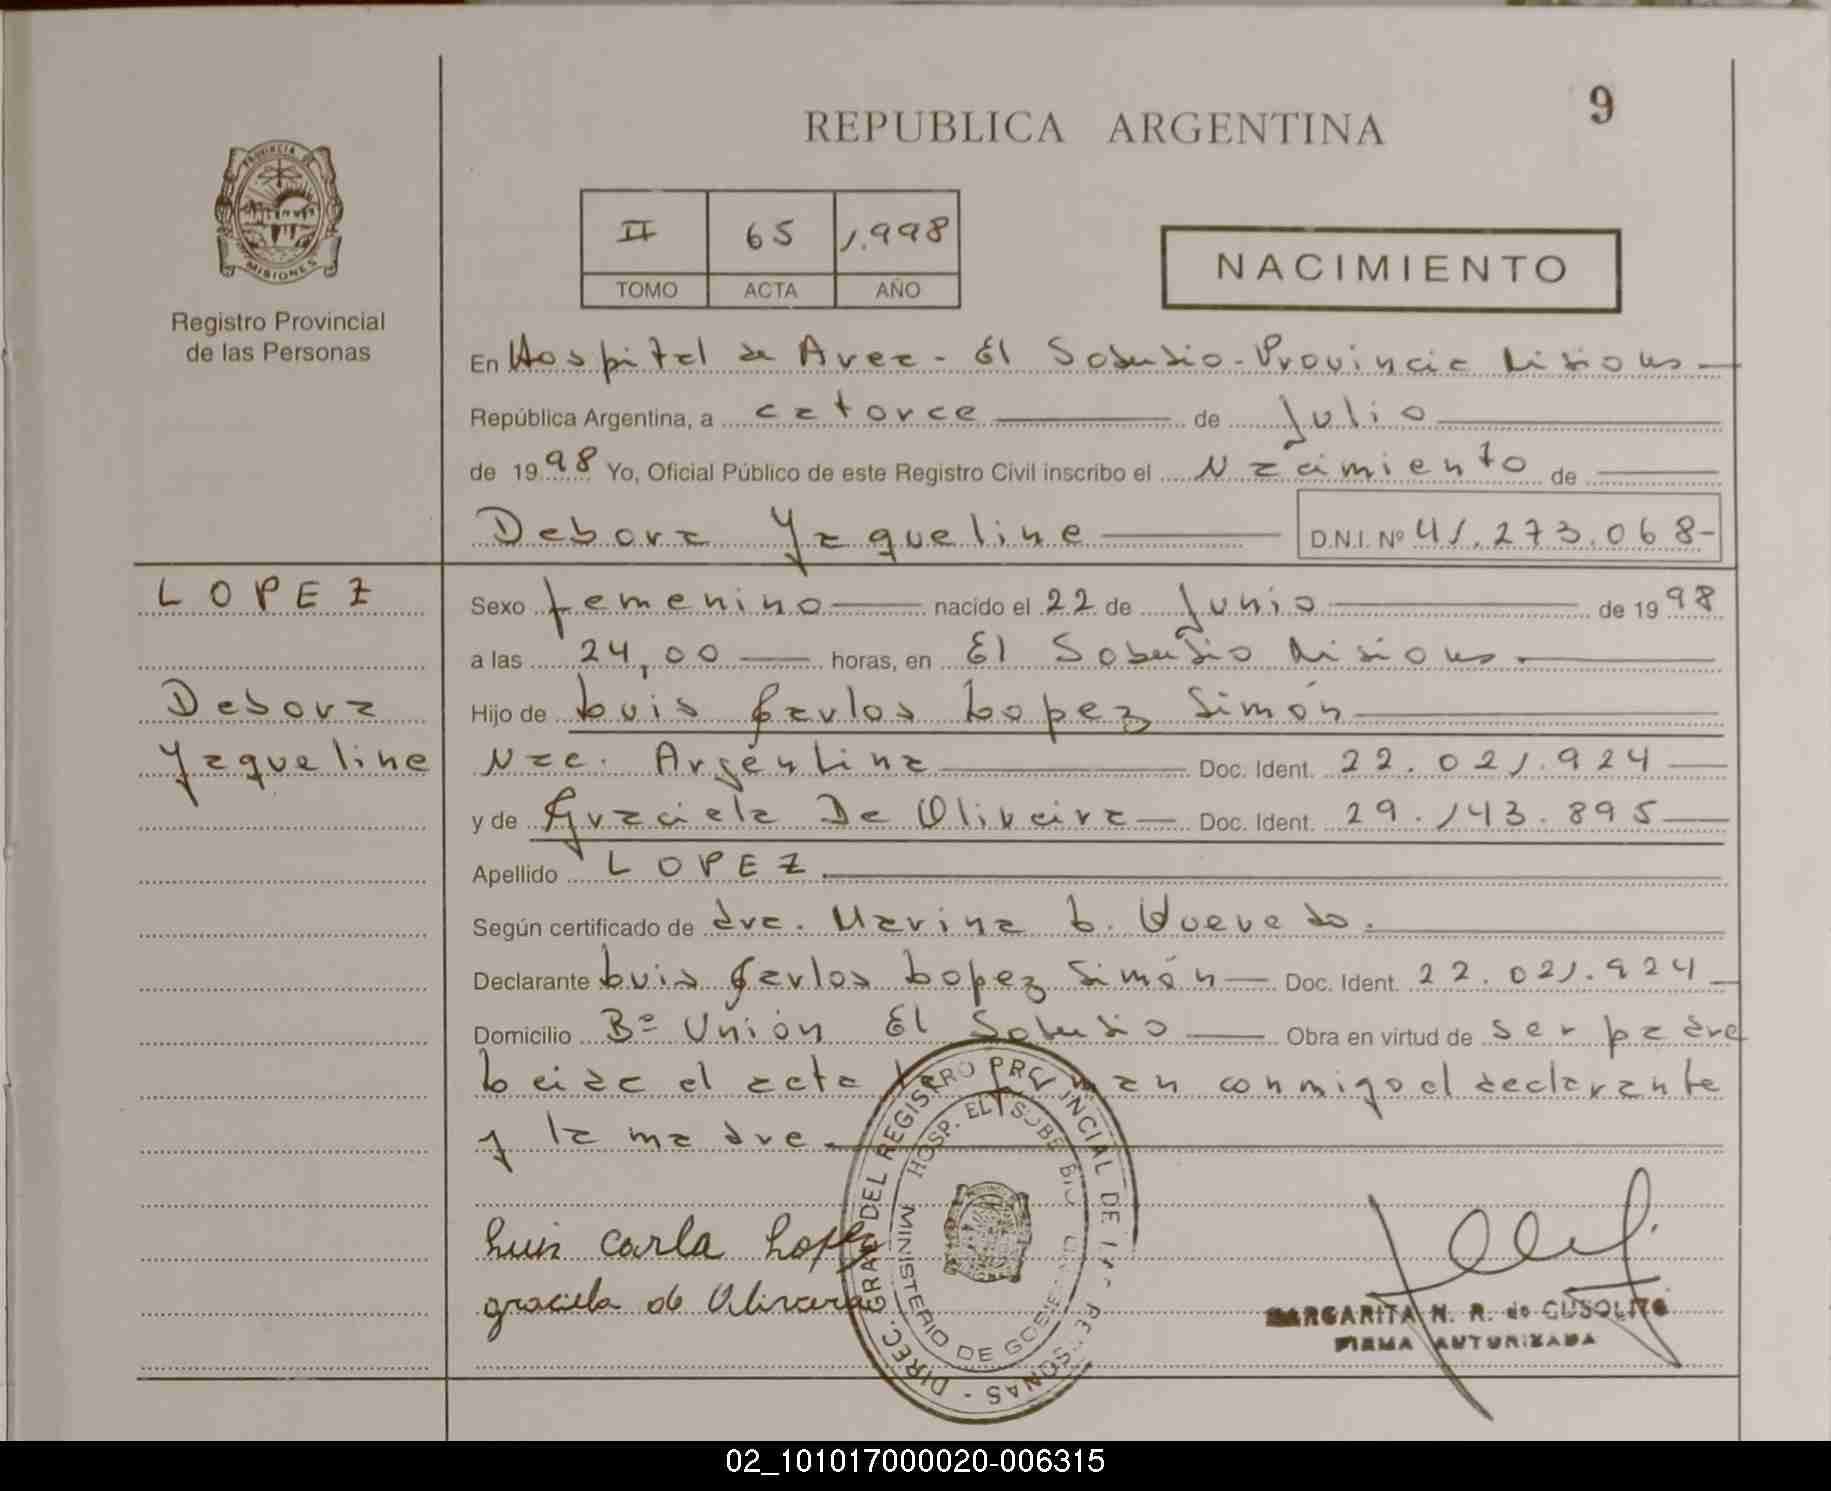 REPUBLICA ARGENTINA
9
PROVINCIA DE
MISIONES
Registro Provincial
de las Personas
II 65 1.998
TOMO ACTA AÑO
NACIMIENTO
En Hospital de Area - El Soberbio - Provincia Misiones
República Argentina, a catorce de Julio
de 1998 Yo, Oficial Público de este Registro Civil inscribo el Nacimiento de
Debora Yaqueline D.N.I. Nº 41.273.068-
LOPEZ
Debora
Yaqueline
Sexo femenino nacido el 22 de Junio de 1998
a las 24,00 horas, en El Soberbio Misiones.
Hijo de Luis Carlos Lopez Simón
Nac. Argentina Doc. Ident. 22.021.924
y de Graciela De Oliveira Doc. Ident. 29.143.895
Apellido LOPEZ
Según certificado de dra. Marina L. Quevedo.
Declarante Luis Carlos Lopez Simón Doc. Ident. 22.021.924
Domicilio Bº Unión El Soberbio Obra en virtud de ser padre
Leida el acta conmigo el declarante
y la madre.
DIREC. GRAL. DEL REGISTRO PROVINCIAL DE LAS PERSONAS -
HOSP. EL SOBERBIO
MINISTERIO DE GOBIERNO
Luis Carlo Lopez
graciela de Oliveira
MARGARITA N. R. de CUSOLITO
FIRMA AUTORIZADA
02_101017000020-006315